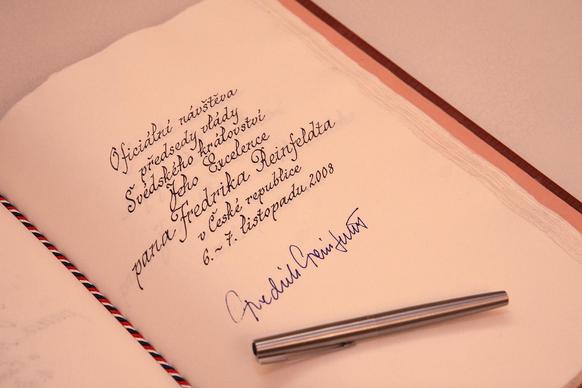 Oficiální návštěva
předsedy vlády
Švédského království
Jeho Excelence
pana Fredrika Reinfeldta
v České republice
6. ~ 7. listopadu 2008
Fredrik Reinfeldt